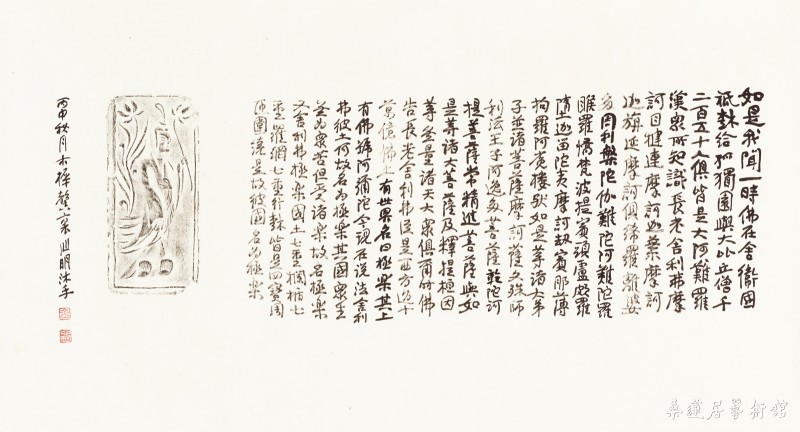 如是我聞一時佛在舍衛國
祇樹給孤獨園與大比丘僧千
二百五十人俱皆是大阿難羅
漢眾所知識長老舍利弗摩
訶目犍連摩訶迦葉摩訶
迦旃延摩訶俱絺羅離婆
多周利槃陀伽難陀阿難陀羅
睺羅憍梵波提賓頭盧頗羅
墮迦留陀夷摩訶劫賓那薄
拘羅阿㝹樓馱如是等諸大弟
子並諸菩薩摩訶薩文殊師
利法王子阿逸多菩薩乾陀訶
提菩薩常精進菩薩與如
是等諸大菩薩及釋提桓因
等無量諸天大衆俱爾時佛
告長老舍利弗從是西方過十
萬億佛土有世界名曰極樂其土
有佛號阿彌陀今現在說法舍利
弗彼土何故名為極樂其國衆生
無為衆苦但受諸樂故名極樂
又舍利弗極樂國土七重欄楯七
重羅網七重行樹皆是四寶周
匝圍繞是故彼國名為極樂
丙申秋月於禪明沐手
桑蓮居藝術館